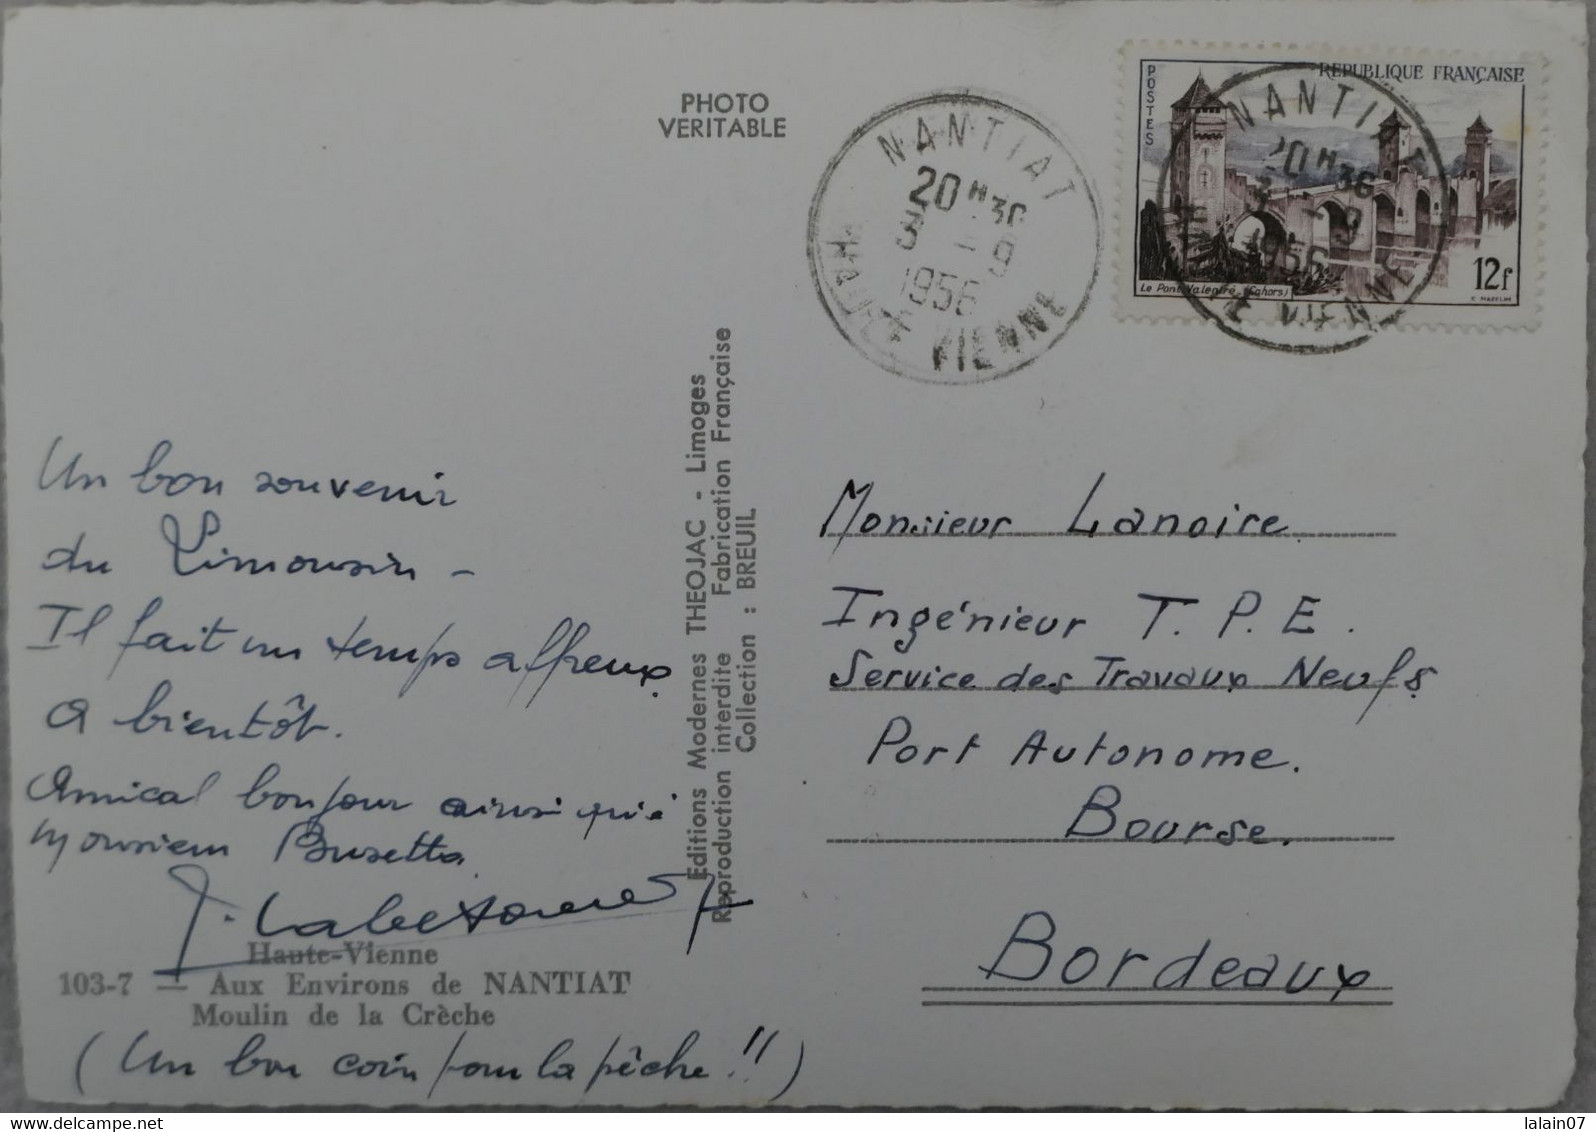 PHOTO
VERITABLE
NANTIAT
20 H 30
3 - 9
1956
HAUTE VIENNE
POSTES
REPUBLIQUE FRANÇAISE
Le Pont Valentré (Cahors)
12f
NANTIAT
20 H 30
3 - 9
1956
HAUTE VIENNE
Un bon souvenir
du Limousin -
Il fait un temps affreux
A bientôt.
Amical bonjour ainsi qu'à
Monsieur Busetta
Haute-Vienne
103-7 — Aux Environs de NANTIAT
Moulin de la Crèche
(Un bon coin pour la pêche!!)
Editions Modernes THEOJAC - Limoges
Reproduction interdite Fabrication Française
Collection : BREUIL
Monsieur Lanoire
Ingénieur T. P. E.
Service des Travaux Neufs
Port Autonome.
Bourse.
Bordeaux
lalain07